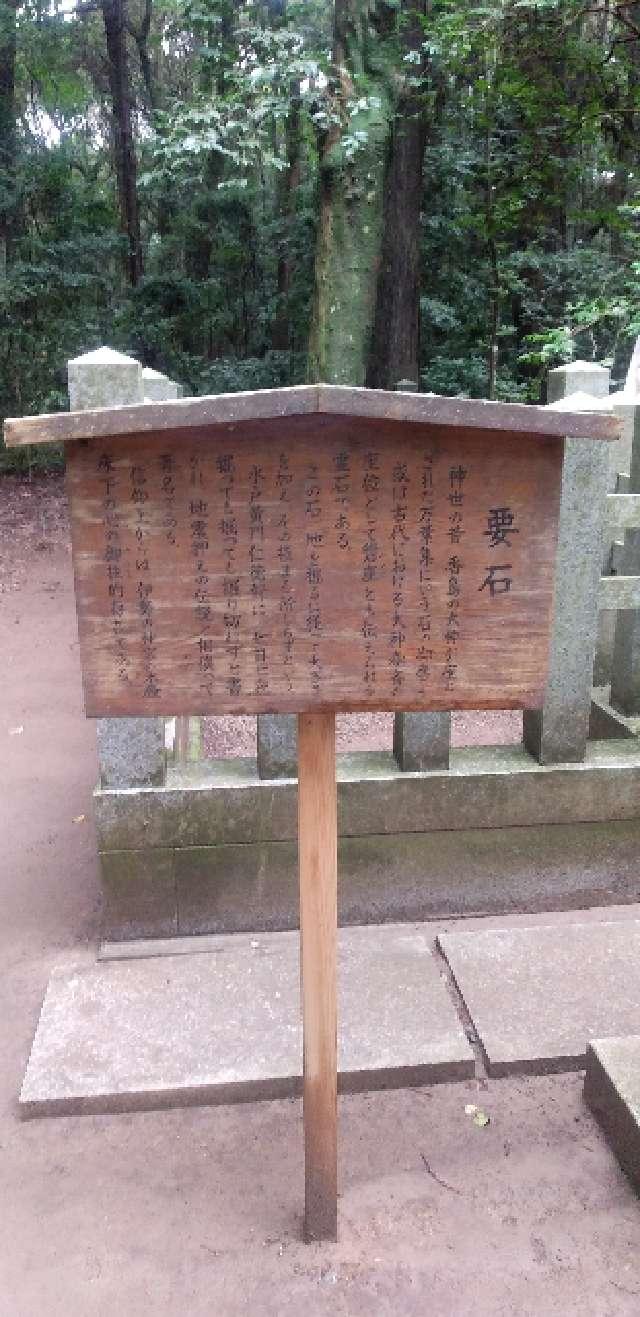 要石
神世の昔 香島の大神が座と
された万葉集にいう石の御座
或は古代における大神奉斎の
座位として磐座とも伝えられる
霊石である。
この石 地を掘るに従って大きさ
を加え その極まる所しらずという
水戸黄門仁徳録に 七日七夜
掘っても掘っても掘り切れずと書
かれ 地震押えの伝説と相俟って
著名である。
信仰上からは 伊勢の神宮の
床下の の御柱的存在である。